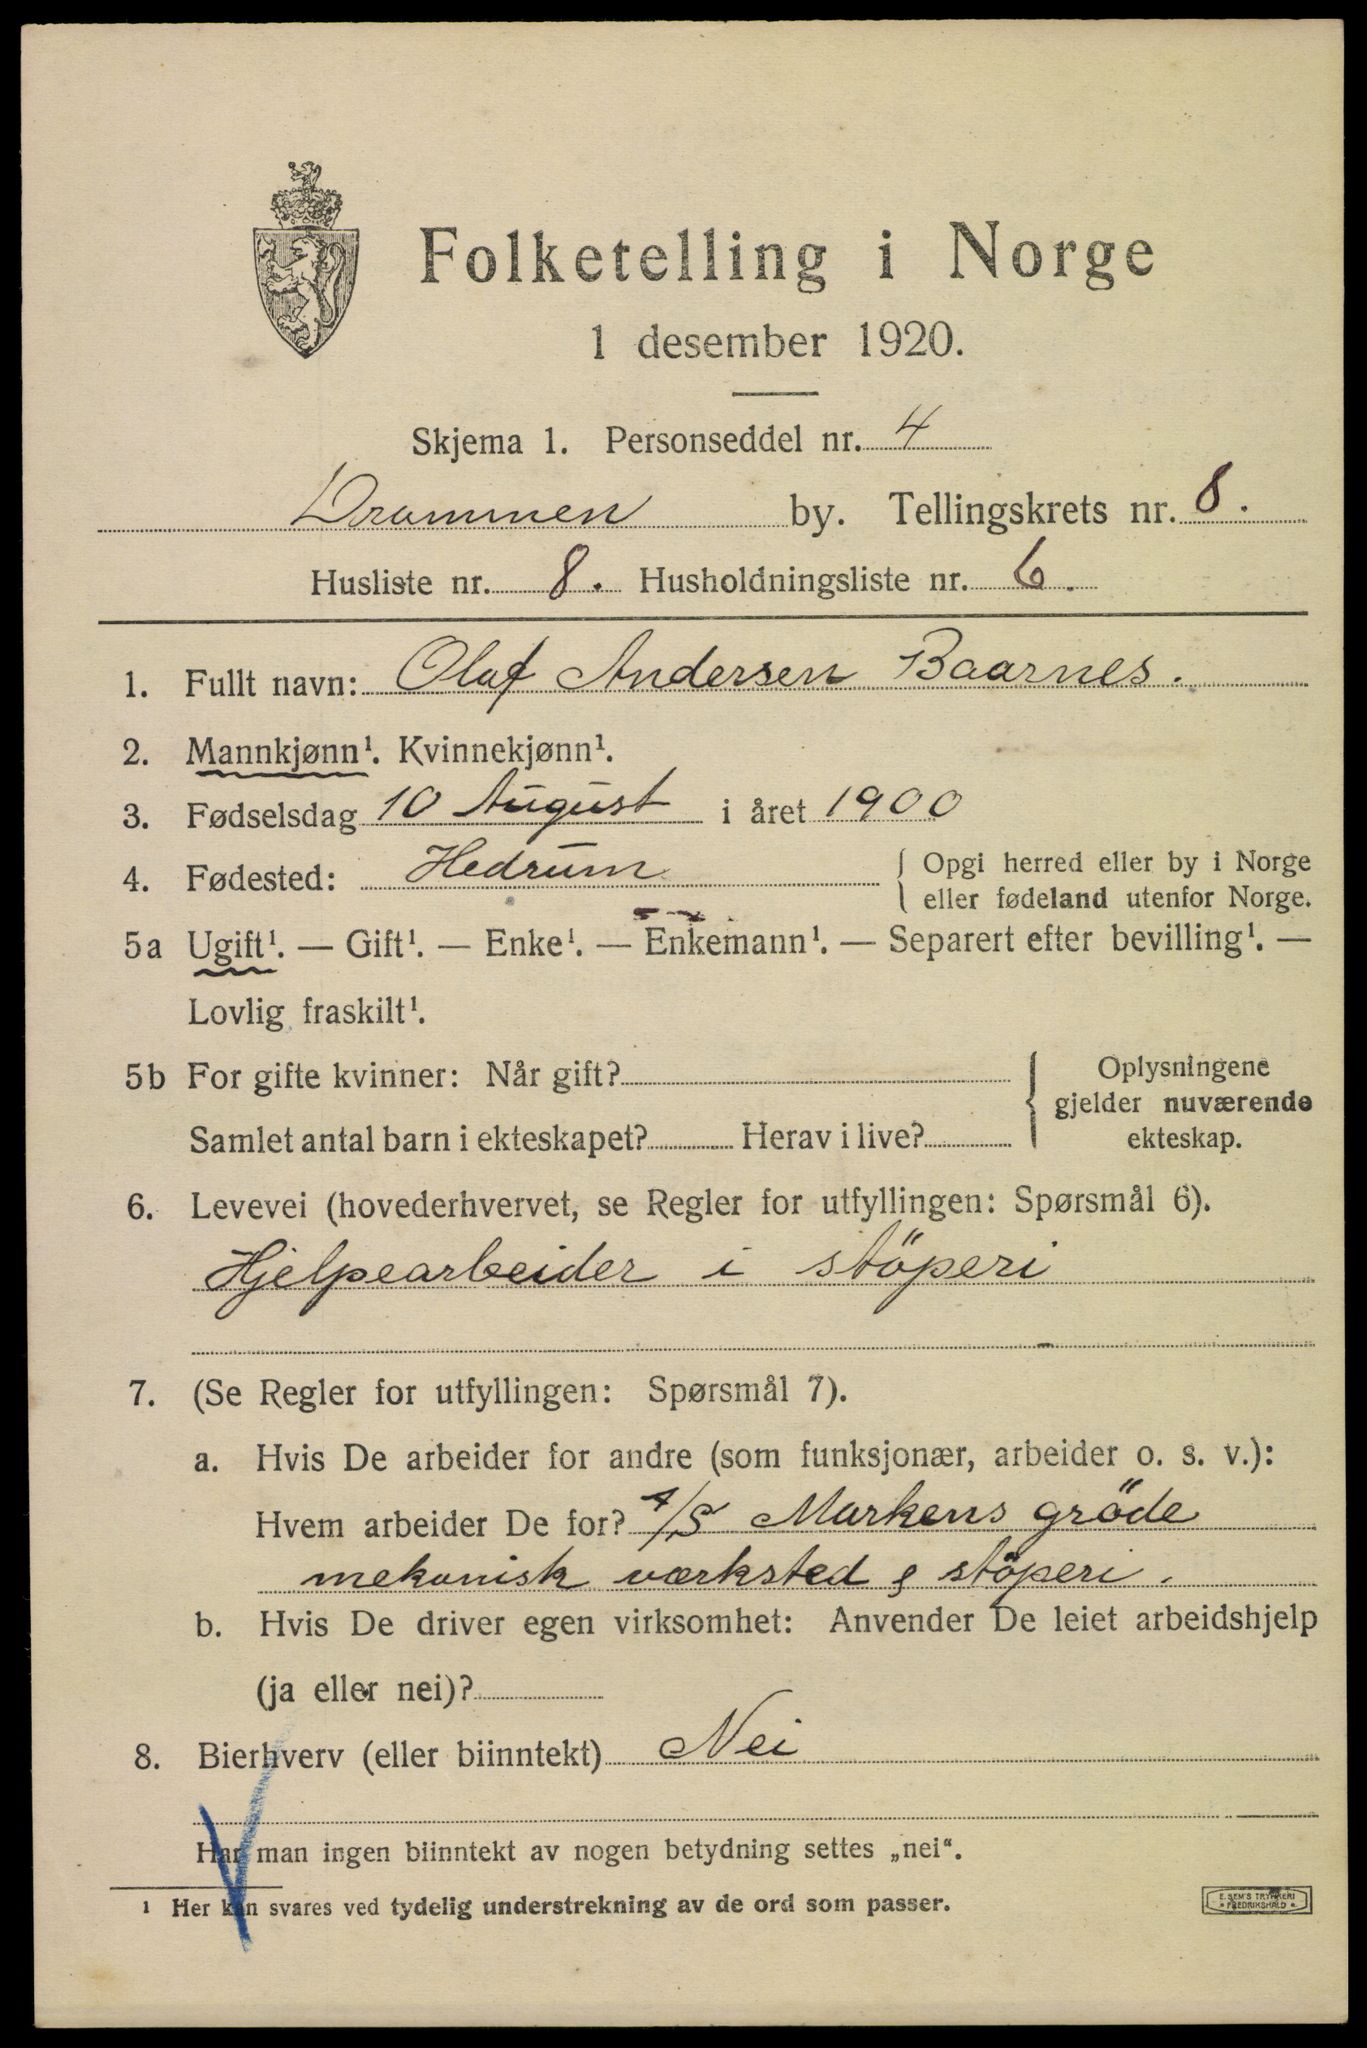 Folketelling i Norge
1 desember 1920.
Skjema 1. Personseddel nr. 4
Drammen by. Tellingskrets nr. 8.
Husliste nr. 8. Husholdningsliste nr. 6.
1. Fullt navn: Olaf Andersen Baarnes.
2. Mannkjønn¹. Kvinnekjønn¹.
3. Fødselsdag 10 August i året 1900
4. Fødested: Hedrum { Opgi herred eller by i Norge
eller fødeland utenfor Norge.
5a Ugift¹. — Gift¹. — Enke¹. — Enkemann¹. — Separert efter bevilling¹. —
Lovlig fraskilt¹.
5b For gifte kvinner: Når gift? { Oplysningene
gjelder nuværende
Samlet antal barn i ekteskapet? Herav i live? ekteskap.
6. Levevei (hovederhvervet, se Regler for utfyllingen: Spørsmål 6).
Hjelpearbeider i stöperi
7. (Se Regler for utfyllingen: Spørsmål 7).
a. Hvis De arbeider for andre (som funksjonær, arbeider o. s. v.):
Hvem arbeider De for? A/S Markens gröde
mekanisk værksted & stöperi.
b. Hvis De driver egen virksomhet: Anvender De leiet arbeidshjelp
(ja eller nei)?
8. Bierhverv (eller biinntekt) Nei
Har man ingen biinntekt av nogen betydning settes „nei“.
¹ Her kan svares ved tydelig understrekning av de ord som passer.
E. SEM'S TRYKKERI
* FREDRIKSHALD *